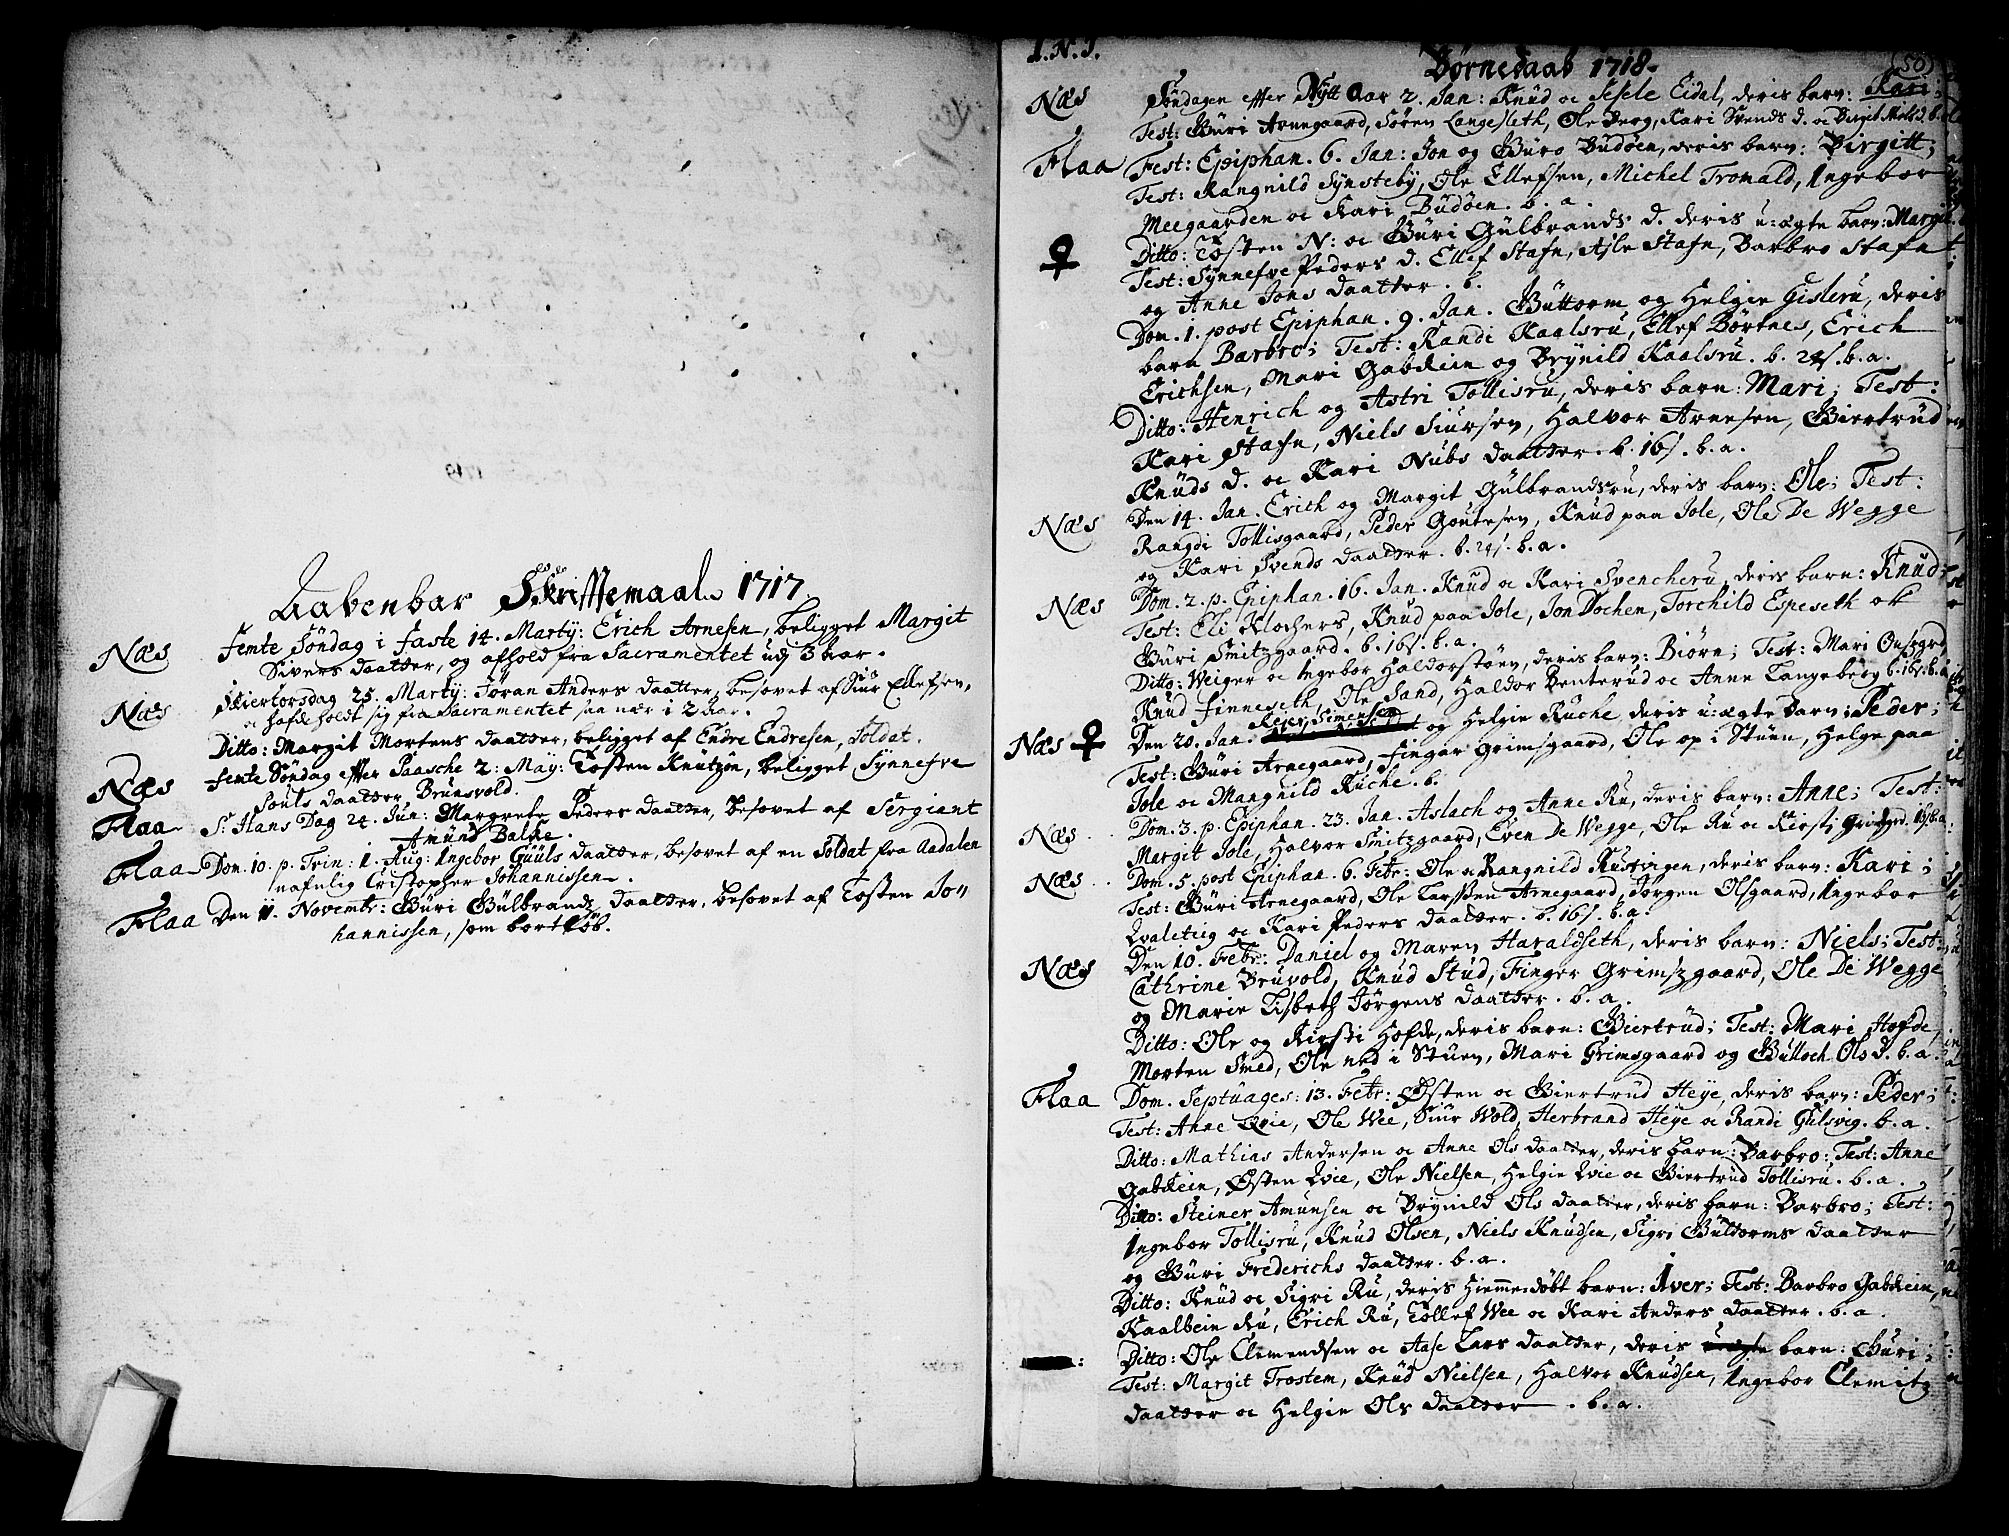 Aabenbar Skrifftemaal 1717.
Næs Femte Søndag i Faste 14. Martij: Erich Arnesen, beligget Margit
Sivers daatter, og afhold fra Sacramentet udj 3 aar.
Næs Skiertorsdag 25. Martij: Jøran Anders daatter, besovet af Siur Ellefsen,
oc hafde holdt sig fra Sacramentet saa nær i 2 aar.
Ditto: Margit Mortens daatter, beligget af Endre Endresen, Soldat.
Næs Femte Søndag effter Paasche 2: May: Tosten Knutzøn, beligget Synnefve
Pouls daatter Brunsvold.
Flaa St. Hans Dag 24. Jun: Margrete Peders daatter, besovet af Sergiant
Amund Balke.
Flaa Dom. 10. p. Trin: 1. Aug: Ingebor Guuls daatter, besovet af en Soldat fra Aadalen
nafnlig Cristopher Johannissen.
Flaa Den 11. Novembr: Guri Gulbrands daatter, besovet af Tosten Jo-
hannissen, som bortløb.
I.N.J.
Børnedaab 1718. (50)
Næs Søndagen effter Nytt Aar 2. Jan: Knud oc Sesele Eidal, deris barn: Kari;
Test: Guri Arnegaard, Søren Langesleth, Ole Berg, Kari Svends d. oc Birgit Niels d. b.
Flaa Fest: Epiphan. 6. Jan: Jon og Guro Budøen, deris barn: Birgitt;
Test: Rangnild Synsteby, Ole Ellefsen, Michel Tromald, Ingebor
Meegaarden oc Kari Budøen. b. a.
♀ Ditto: Tosten N: oc Guri Gulbrands d. deris u:ægte barn: Margit
Test: Synnefve Peders d. Ellef Stafn, Asle Stafn, Barbro Stafn
og Anne Jons daatter. b.
Dom. 1. post Epiphan. 9. Jan. Guttorm og Helgie Gisleru, deris
barn Barbro; Test: Randi Kaalsru, Ellef Børtnes, Erich
Erichsen, Mari Gabkein og Brynild Kaalsru. b. 24s. b. a.
Ditto: Henrich og Astri Tollisru, deris barn: Mari; Test:
Kari Stafn, Niels Siursen, Halvor Arnesen, Giertrud
Knuds d. oc Kari Nubs daatter. b. 16s. b. a.
Næs Den 14. Jan. Erich og Margit Gulbrandsru, deris barn: Ole; Test:
Rangdi Tollisgaard, Peder Goutesen, Knud paa Jole, Ole De Wegge
og Kari Svends daatter. b. 24s. b. a.
Næs Dom. 2. p. Epiphan. 16. Jan. Knud oc Kari Svencheru, deris barn: Knud;
Test: Eli Klochers, Knud paa Jole, Jon Dochen, Torchild Espeseth oc
Guri Smitzgaard. b. 16s. b. a.
Ditto: Weiger oc Ingebor Haldorstøen, deris barn: Biørn; Test: Mari Onsgrd
Knud Finneseth, Ole Sand, Haldor Benterud oc Anne Langeberg b. 16s. b. a.
Næs ♀ Den 20. Jan. Reier Simensen og Helgie Ruche, deris u:ægte Barn: Peder;
Test: Guri Arnegaard, Fingar Grimsgaard, Ole op i Stuen, Helge paa
Jole oc Mangnild Ruche. b.
Næs Dom. 3. p. Epiphan. 23. Jan. Aslach og Anne Ru, deris barn: Anne; Test:
Margit Jole, Halvor Smitzgaard, Even De Wegge, Ole Ru oc Kirsti 16s. b. a.
Næs Dom. 5. post Epiphan. 6. Febr: Ole oc Rangnild Rustingen, deris barn: Kari;
Test: Guri Arnegaard, Ole Larssen Arnegaard, Jørgen Olsgaard, Ingebor
Qvaleteig oc Kari Peders daatter. b. 16s. b. a.
Næs Den 10. Febr: Daniel og Maren Haraldseth, deris barn: Niels; Test:
Cathrine Bruvold, Knud Stud, Finger Grimszgaard, Ole De Wegge
og Marie Lisbeth Jørgens daatter. b. a.
Ditto: Ole og Kirsti Hofde, deris barn: Giertrud; Test: Mari Hofde,
Morten Smed, Ole ned i Stuen, Mari Grimsgaard og Gulloch Ols d. b. a.
Flaa Dom. Septuages: 13. Febr: Østen oc Giertrud Heye, deris barn: Peder;
Test: Anne Qvie, Ole Wee, Siur Wold, Herbrand Heye oc Randi Gulsvig. b. a.
Ditto: Mathias Andersen oc Anne Ols daatter, deris barn: Barbro: Test: Anne
Gabkein, Østen Qvie, Ole Nielsen, Helgie Qvie oc Giertrud Tollisru. b. a.
Ditto: Steiner Amunsen oc Brynild Ols daatter, deris barn: Barbro; Test:
Ingebor Tollisru, Knud Olsen, Niels Knudsen, Sigri Guttorms daatter
og Guri Frederichs daatter. b. a.
Ditto: Knud oc Sigri Ru, deris hiemmedøbt barn: Iver; Test: Barbro Gabkein,
Kaalbein Ru, Erich Ru, Tollef Wee oc Kari Anders daatter. b. a.
Ditto: Ole Clemendsen oc Aase Lars daatter, deris uægte barn: Guri;
Test: Margit Trostem, Knud Nielsen, Halvor Knudsen, Ingebor Clemitz
daatter oc Helgie Ols daatter. b. a.